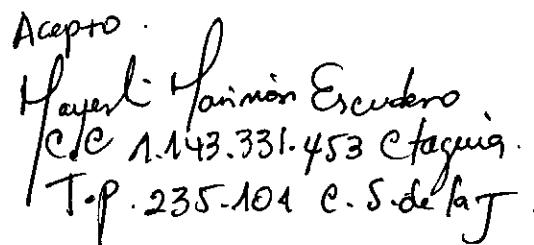 Acepto.
Mayerli Marimón Escudero
C.C 1.143.331.453 Ctagena.
T.P. 235.101 C.S. de la J